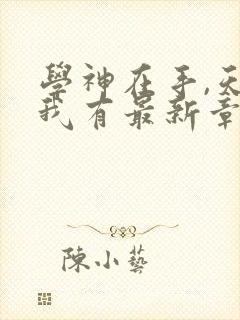 學神在手,天
我有最新章
陳小藝